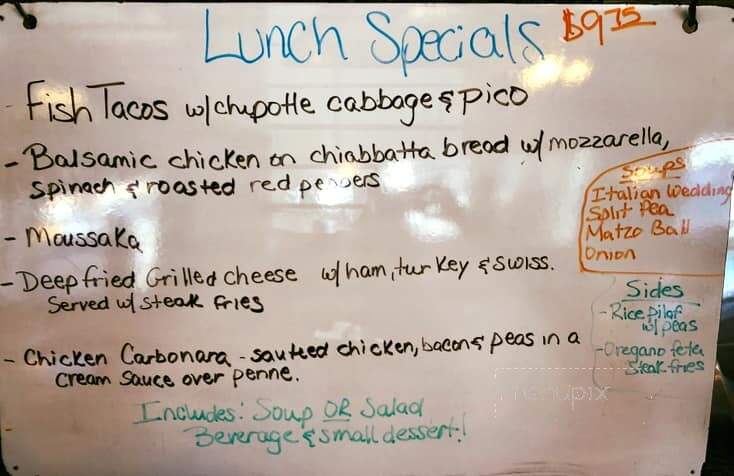 Lunch Specials $9.75
- Fish Tacos w/chipotle cabbage & pico
- Balsamic chicken on chiabbatta bread w/ mozzarella,
spinach & roasted red peppers
- Moussaka
- Deep fried Grilled cheese w/ham, turkey & swiss.
Served w/ steak fries
- Chicken Carbonara - sauteed chicken, bacon & peas in a
cream sauce over penne.
Includes: Soup OR Salad
Beverage & small dessert!
Soups
Italian Wedding
Split Pea
Matzo Ball
Onion
Sides
- Rice Pilaf
w/peas
- Oregano feta
Steak fries
menupix